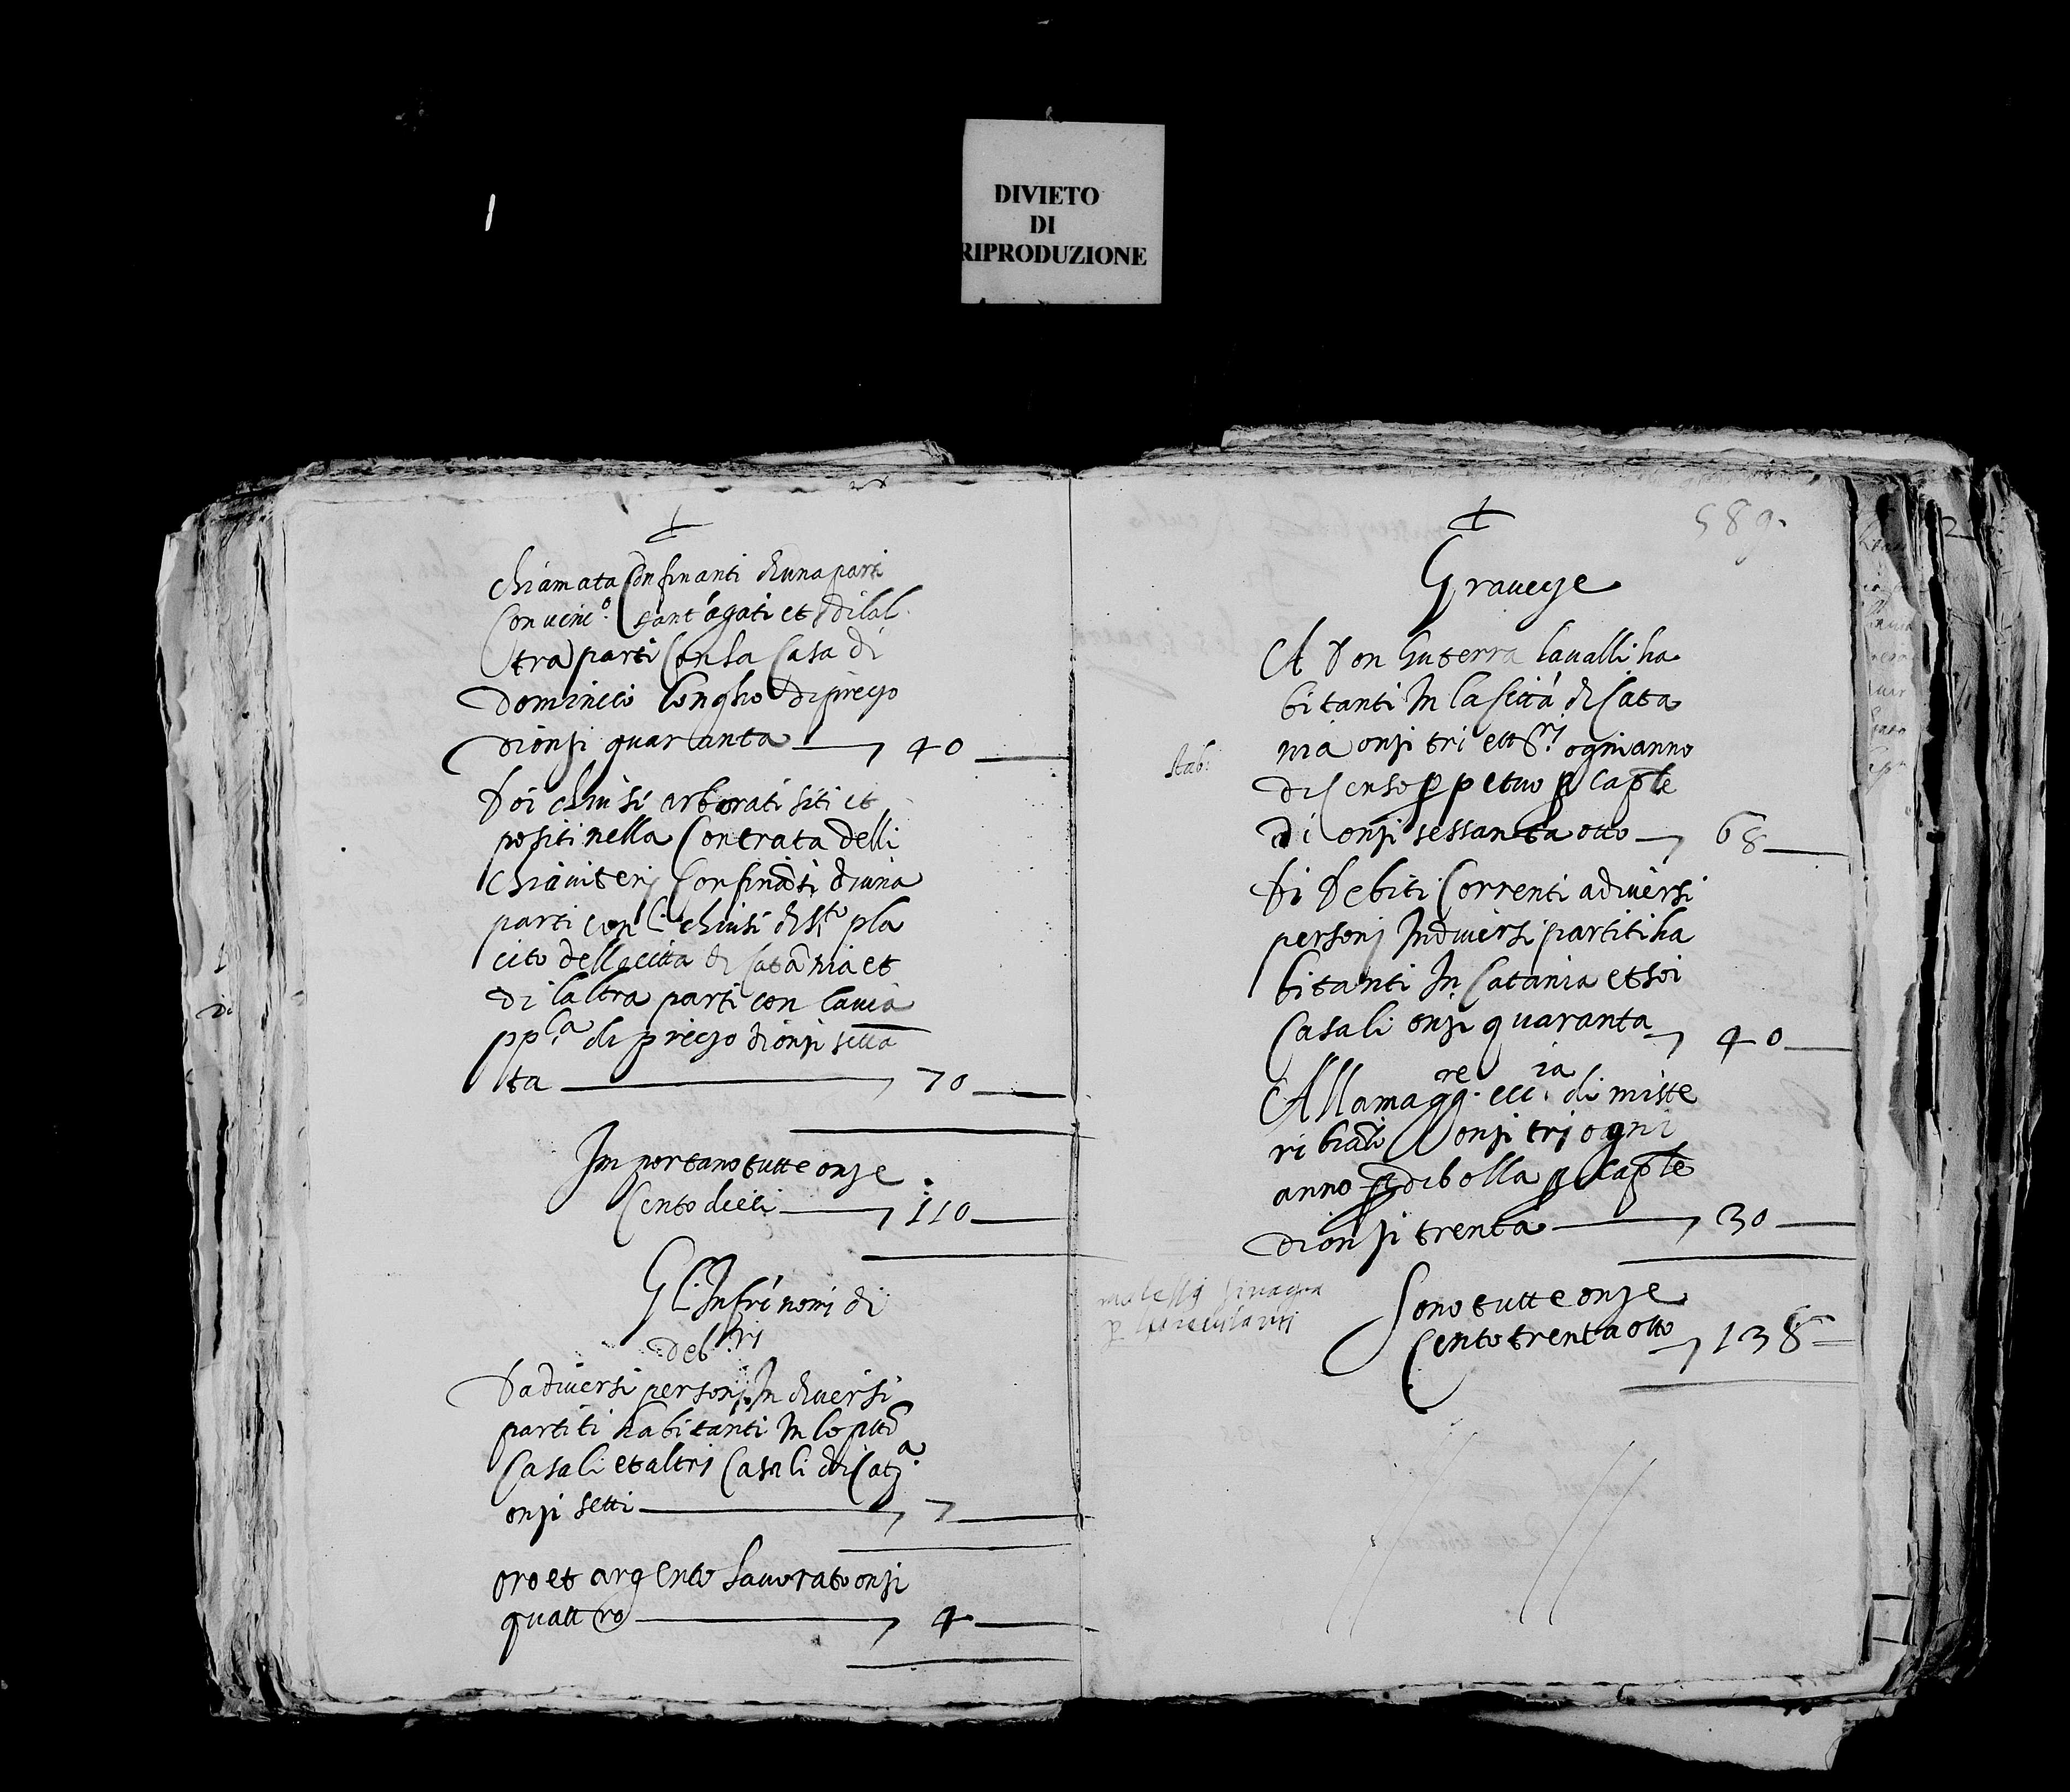 DIVIETO
DI
RIPRODUZIONE
chiamata Confinanti d'una parti
Con vinc.o sant'agati et di lal
tra parti Con la Casa di
Dominico longho di prezo
di onsi quaranta — 40
Doi chiusi arborati siti et
positi nella Contrata delli
Chiaviterj Confinanti d'una
parti con li chiusi di S.to pla
cito della citta di Catania et
di laltra parti con la via
pp.ca di prezo di onsi setta
ta — 70
Importano tutte onze
Cento dieci — 110
Gl'Infri nomi di
deb.ri
Da diversi personj In diversi
partiti habitanti In lo ptto
Casali et altrj Casali di Cat.a
onsi setti — 7
oro et argento lavorato onsi
quattro — 4
589.
Graveze
A Don Guterra lavalli ha
bitanti In la Città di Cata
nia onsi tri et tt.ri ogni anno
di Censo ppetuo p caple
di onsi sessanta otto — 68
Di Debiti Correnti a diversi
personj In diversi partiti ha
bitanti In Catania et soi
Casali onsi quaranta — 40
Alla magg.re ecc.ia di miste
ri bianco onsi trj ogni
anno p di bolla p caple
di onsi trenta — 30
Sono tutte onze
Cento trenta otto — 138